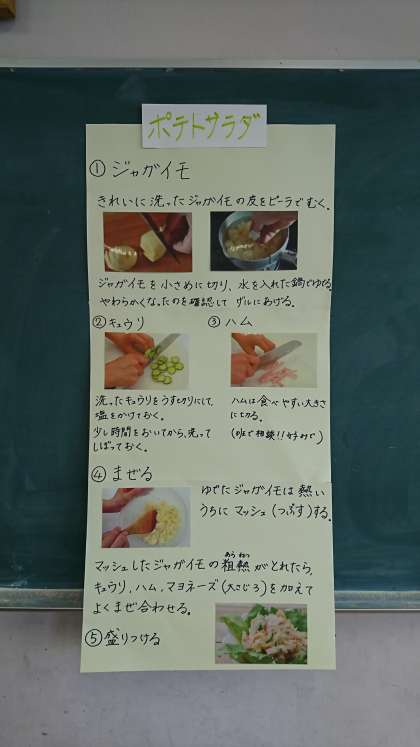 ポテトサラダ
① ジャガイモ
きれいに洗ったジャガイモの皮をピーラでむく。
ジャガイモを小さめに切り、水を入れた鍋でゆでる。
やわらかくなったのを確認して ザルにあげる。
② キュウリ
洗ったキュウリをうす切りにして、
塩をかけておく。
少し時間をおいてから、洗って
しぼっておく。
③ ハム
ハムは食べやすい大きさ
に切る。
(班で相談!!好みで)
④ まぜる
ゆでたジャガイモは熱い
うちに マッシュ(つぶす)する。
あら ねつ
マッシュしたジャガイモの粗熱がとれたら、
キュウリ、ハム、マヨネーズ(大さじ3)を加えて
よくまぜ合わせる。
⑤ 盛りつける